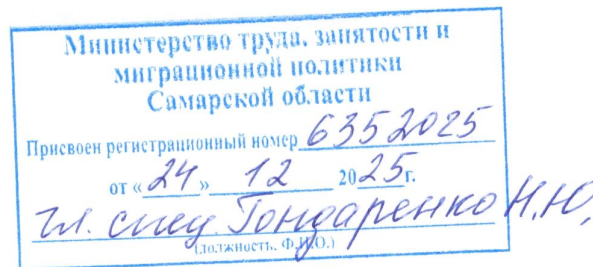 Министерство труда, занятости и
миграционной политики
Самарской области
Присвоен регистрационный номер 6352025
от «24» 12 2025г.
гл. спец. Гончаренко Н.Ю.
(должность, Ф.И.О.)